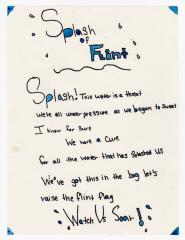 Splash
of
Flint
Splash! This water is a threat
We're all under pressure as we began to sweat
I know for sure
We have a cure
for all the water that has splashed us
We've got this in the bag let's
raise the flint flag
Watch Us Soar!